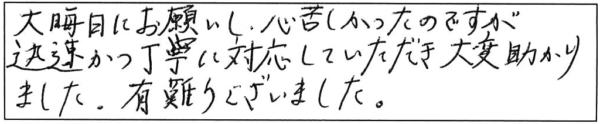 大晦日にお願いし、心苦しかったのですが
迅速かつ丁寧に対応していただき大変助かり
ました。有難うございました。